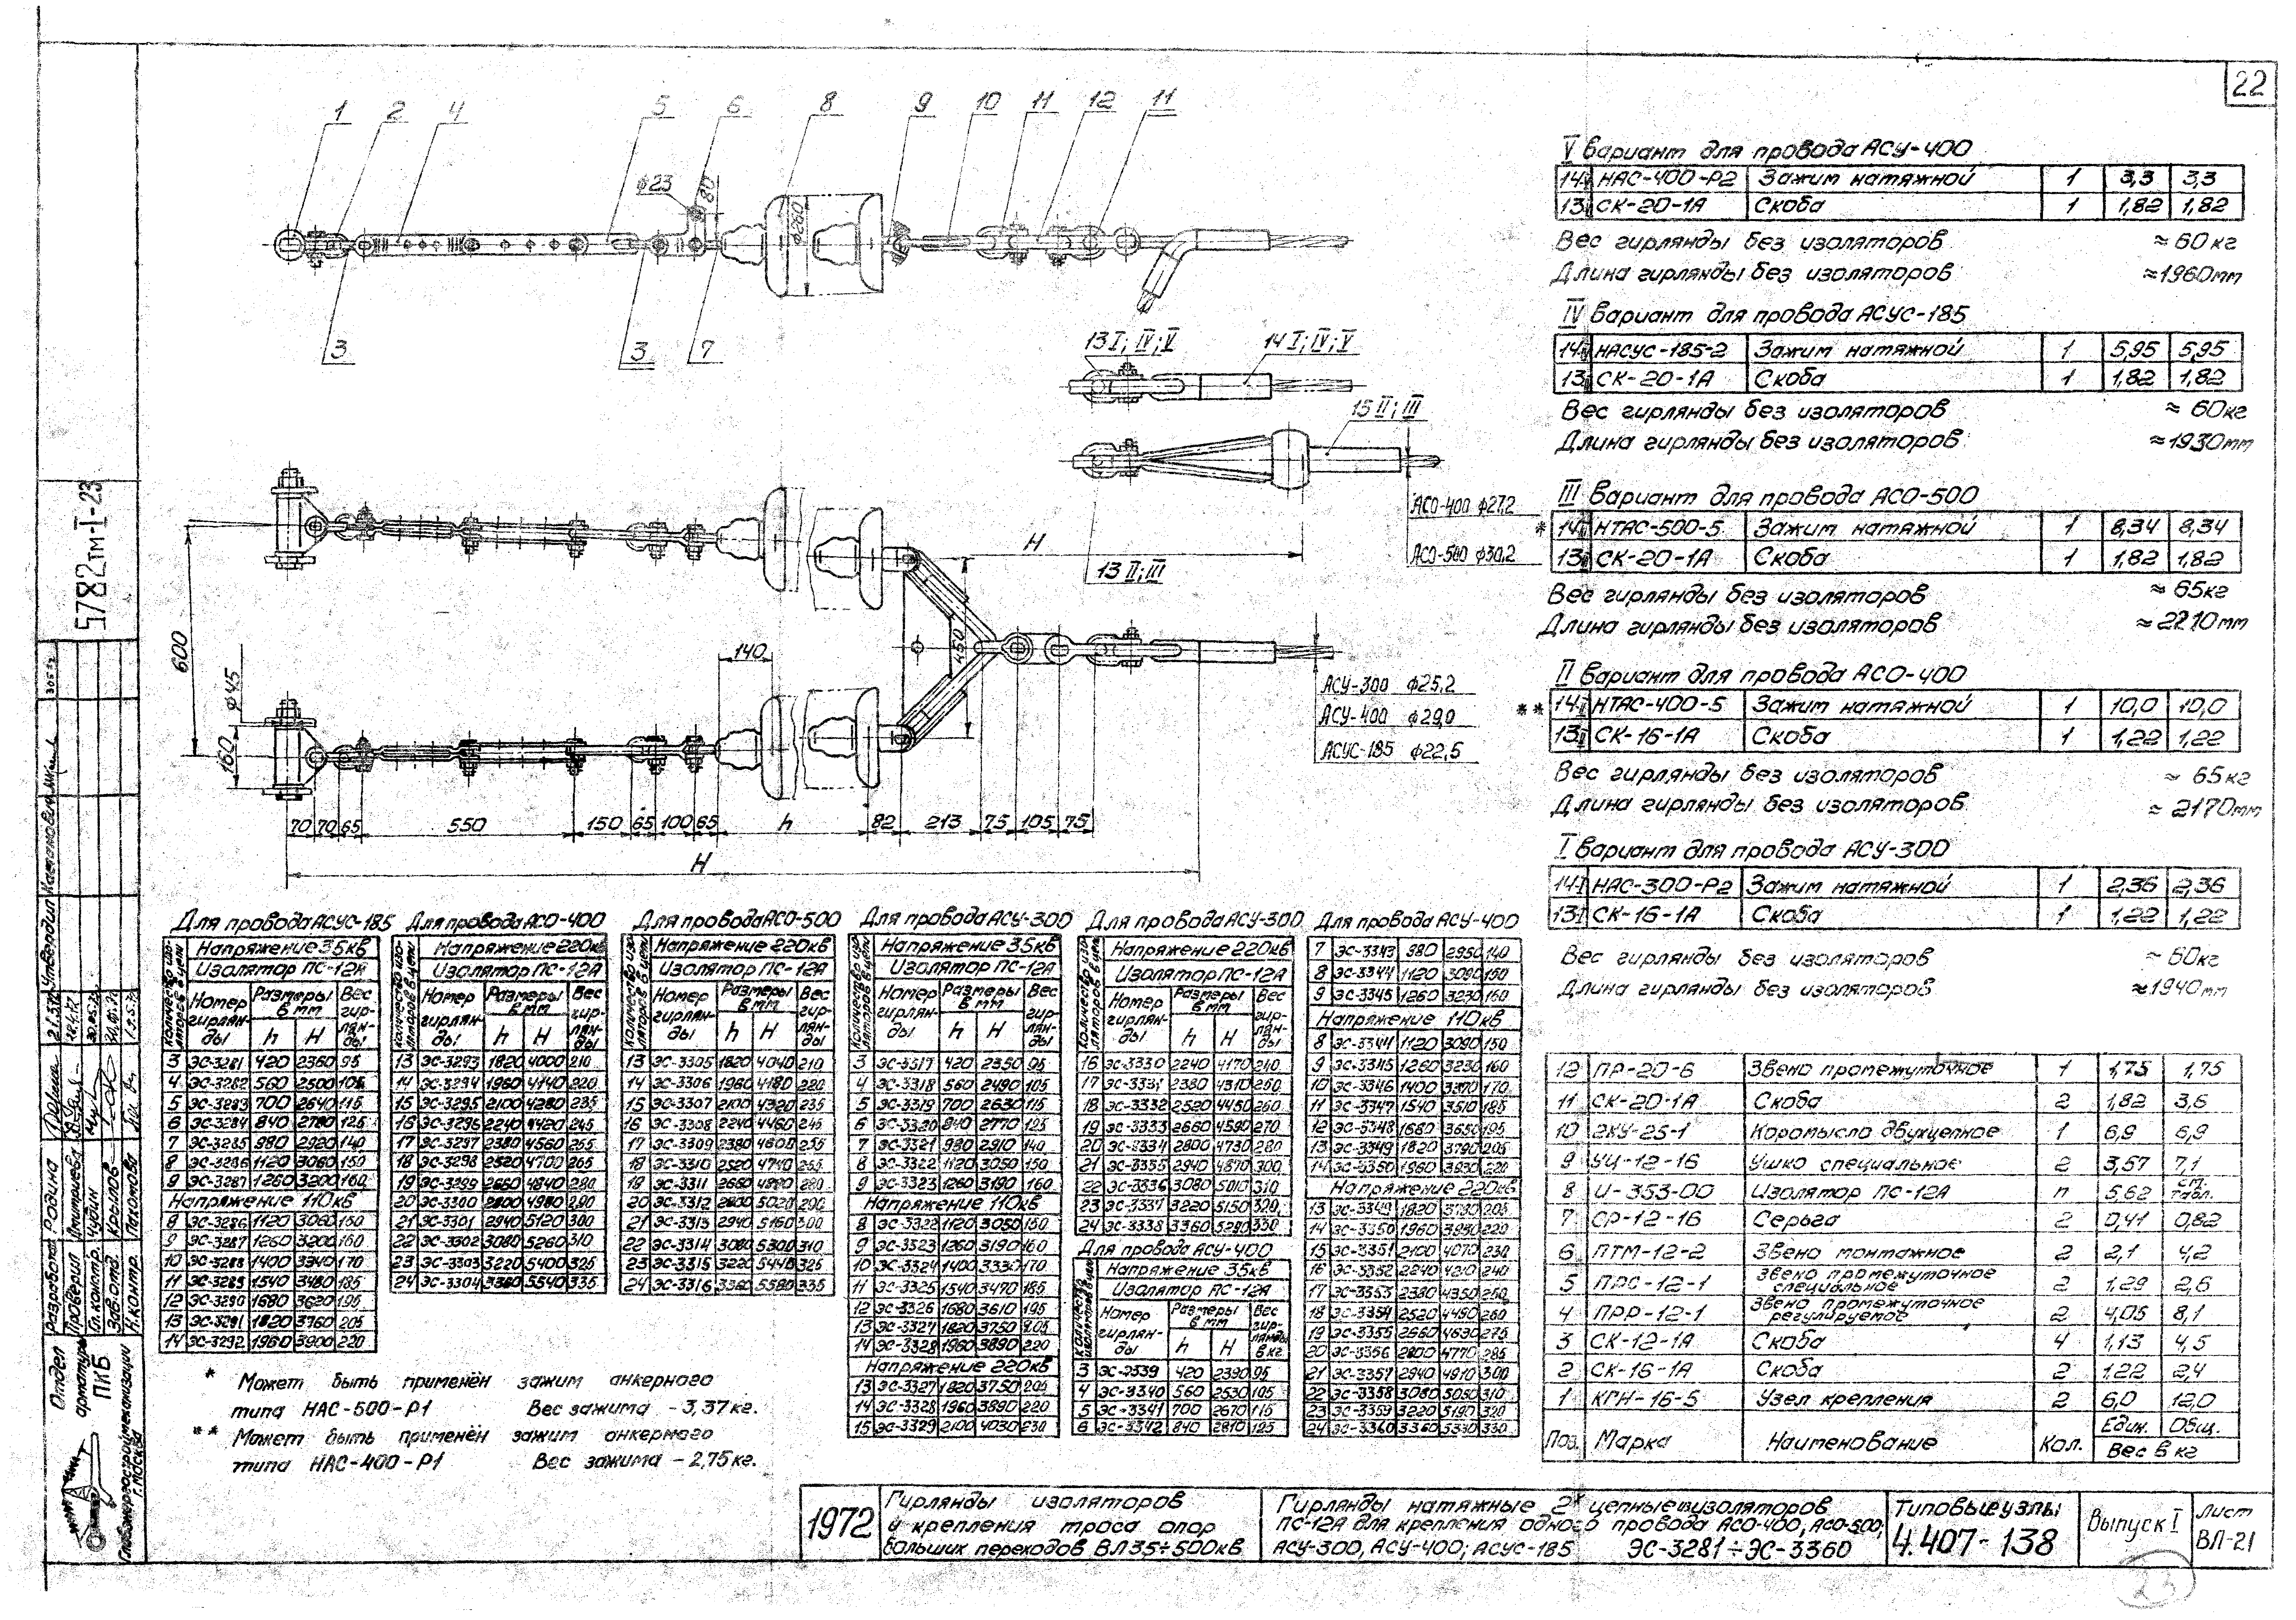 22
1 2 4 5 6 8 9 10 11 12 11
3 3 7
ф23
80
ф260
13 I; IV; V
14 I; IV; V
15 II; III
13 II; III
АСО-400 ф27,2
АСО-500 ф30,2
H
600
ф45
160
140
450
АСУ-300 ф25,2
АСУ-400 ф29,0
АСУС-185 ф22,5
70 70 65 550 150 65 100 65 h 82 213 75 105 75
H
V вариант для провода АСУ-400
14V НАС-400-Р2 Зажим натяжной 1 3,3 3,3
13V СК-20-1А Скоба 1 1,82 1,82
Вес гирлянды без изоляторов ≈60кг
Длина гирлянды без изоляторов ≈1960мм
IV вариант для провода АСУС-185
14IV НАСУС-185-2 Зажим натяжной 1 5,95 5,95
13IV СК-20-1А Скоба 1 1,82 1,82
Вес гирлянды без изоляторов ≈ 60кг
Длина гирлянды без изоляторов ≈1930мм
III вариант для провода АСО-500
* 14III НТАС-500-5 Зажим натяжной 1 8,34 8,34
13III СК-20-1А Скоба 1 1,82 1,82
Вес гирлянды без изоляторов ≈ 65кг
Длина гирлянды без изоляторов ≈2210мм
II вариант для провода АСО-400
** 14II НТАС-400-5 Зажим натяжной 1 10,0 10,0
13II СК-16-1А Скоба 1 1,22 1,22
Вес гирлянды без изоляторов ≈ 65кг
Длина гирлянды без изоляторов ≈ 2170мм
I вариант для провода АСУ-300
14I НАС-300-Р2 Зажим натяжной 1 2,36 2,36
13I СК-16-1А Скоба 1 1,22 1,22
Вес гирлянды без изоляторов ~ 60кг
Длина гирлянды без изоляторов ≈1940мм
12 ПР-20-6 Звено промежуточное 1 1,75 1,75
11 СК-20-1А Скоба 2 1,82 3,6
10 2КУ-25-1 Коромысло двухцепное 1 6,9 6,9
9 УЦ-12-16 Ушко специальное 2 3,57 7,1
8 И-353-00 Изолятор ПС-12А п 5,62 см. табл.
7 СР-12-16 Серьга 2 0,41 0,82
6 ПТМ-12-2 Звено монтажное 2 2,1 4,2
5 ПРС-12-1 Звено промежуточное специальное 2 1,29 2,6
4 ПРР-12-1 Звено промежуточное регулируемое 2 4,05 8,1
3 СК-12-1А Скоба 4 1,13 4,5
2 СК-16-1А Скоба 2 1,22 2,4
1 КГН-16-5 Узел крепления 2 6,0 12,0
Поз. Марка Наименование Кол. Един. Общ.
Вес в кг
Для провода АСУС-185
Количество изоляторов в цепи
Напряжение 35кв
Изолятор ПС-12А
Номер гирлянды Размеры в мм h H Вес гирлянды
3 ЭС-3281 420 2360 95
4 ЭС-3282 560 2500 105
5 ЭС-3283 700 2640 115
6 ЭС-3284 840 2780 125
7 ЭС-3285 980 2920 140
8 ЭС-3286 1120 3060 150
9 ЭС-3287 1260 3200 160
Напряжение 110кв
8 ЭС-3286 1120 3060 150
9 ЭС-3287 1260 3200 160
10 ЭС-3288 1400 3340 170
11 ЭС-3289 1540 3480 185
12 ЭС-3290 1680 3620 195
13 ЭС-3291 1820 3760 205
14 ЭС-3292 1960 3900 220
Для провода АСО-400
Количество изоляторов в цепи
Напряжение 220кв
Изолятор ПС-12А
Номер гирлянды Размеры в мм h H Вес гирлянды
13 ЭС-3293 1820 4000 210
14 ЭС-3294 1960 4140 220
15 ЭС-3295 2100 4280 235
16 ЭС-3296 2240 4420 245
17 ЭС-3297 2380 4560 255
18 ЭС-3298 2520 4700 265
19 ЭС-3299 2660 4840 280
20 ЭС-3300 2800 4980 290
21 ЭС-3301 2940 5120 300
22 ЭС-3302 3080 5260 310
23 ЭС-3303 3220 5400 325
24 ЭС-3304 3360 5540 335
Для провода АСО-500
Количество изоляторов в цепи
Напряжение 220кв
Изолятор ПС-12А
Номер гирлянды Размеры в мм h H Вес гирлянды
13 ЭС-3305 1820 4040 210
14 ЭС-3306 1960 4180 220
15 ЭС-3307 2100 4320 235
16 ЭС-3308 2240 4460 245
17 ЭС-3309 2380 4600 255
18 ЭС-3310 2520 4740 265
19 ЭС-3311 2660 4880 280
20 ЭС-3312 2800 5020 290
21 ЭС-3313 2940 5160 300
22 ЭС-3314 3080 5300 310
23 ЭС-3315 3220 5440 325
24 ЭС-3316 3360 5580 335
Для провода АСУ-300
Количество изоляторов в цепи
Напряжение 35кв
Изолятор ПС-12А
Номер гирлянды Размеры в мм h H Вес гирлянды
3 ЭС-3317 420 2350 95
4 ЭС-3318 560 2490 105
5 ЭС-3319 700 2630 115
6 ЭС-3320 840 2770 125
7 ЭС-3321 980 2910 140
8 ЭС-3322 1120 3050 150
9 ЭС-3323 1260 3190 160
Напряжение 110кв
8 ЭС-3322 1120 3050 150
9 ЭС-3323 1260 3190 160
10 ЭС-3324 1400 3330 170
11 ЭС-3325 1540 3470 185
12 ЭС-3326 1680 3610 195
13 ЭС-3327 1820 3750 205
14 ЭС-3328 1960 3890 220
Напряжение 220кв
13 ЭС-3327 1820 3750 205
14 ЭС-3328 1960 3890 220
15 ЭС-3329 2100 4030 230
Для провода АСУ-300
Количество изоляторов в цепи
Напряжение 220кв
Изолятор ПС-12А
Номер гирлянды Размеры в мм h H Вес гирлянды
16 ЭС-3330 2240 4170 240
17 ЭС-3331 2380 4310 250
18 ЭС-3332 2520 4450 260
19 ЭС-3333 2660 4590 270
20 ЭС-3334 2800 4730 280
21 ЭС-3335 2940 4870 300
22 ЭС-3336 3080 5010 310
23 ЭС-3337 3220 5150 320
24 ЭС-3338 3360 5290 330
Для провода АСУ-400
Количество изоляторов в цепи
Напряжение 35кв
Изолятор ПС-12А
Номер гирлянды Размеры в мм h H Вес гирлянды в кг
3 ЭС-3339 420 2390 95
4 ЭС-3340 560 2530 105
5 ЭС-3341 700 2670 115
6 ЭС-3342 840 2810 125
Для провода АСУ-400
7 ЭС-3343 980 2950 140
8 ЭС-3344 1120 3090 150
9 ЭС-3345 1260 3230 160
Напряжение 110кв
8 ЭС-3344 1120 3090 150
9 ЭС-3345 1260 3230 160
10 ЭС-3346 1400 3370 170
11 ЭС-3347 1540 3510 185
12 ЭС-3348 1680 3650 195
13 ЭС-3349 1820 3790 205
14 ЭС-3350 1960 3930 220
Напряжение 220кв
13 ЭС-3349 1820 3790 205
14 ЭС-3350 1960 3930 220
15 ЭС-3351 2100 4070 230
16 ЭС-3352 2240 4210 240
17 ЭС-3353 2380 4350 250
18 ЭС-3354 2520 4490 260
19 ЭС-3355 2660 4630 275
20 ЭС-3356 2800 4770 285
21 ЭС-3357 2940 4910 300
22 ЭС-3358 3080 5050 310
23 ЭС-3359 3220 5190 320
24 ЭС-3360 3360 5330 330
* Может быть применён зажим анкерного
типа НАС-500-Р1 Вес зажима - 3,37кг.
** Может быть применён зажим анкерного
типа НАС-400-Р1 Вес зажима - 2,75кг.
1972
Гирлянды изоляторов
и крепления троса опор
больших переходов ВЛ 35÷500кв
Гирлянды натяжные 2х цепные изоляторов
ПС-12А для крепления одного провода АСО-400, АСО-500;
АСУ-300, АСУ-400; АСУС-185 ЭС-3281÷ЭС-3360
Типовые узлы
4.407-138
Выпуск I
Лист
ВЛ-21
23
5782тм-I-23
Утвердил
Разработал Родина
Проверил Дмитриева
Гл.контр. Чубин
Зав.отд. Крылов
Н.контр. Пахотова
Отдел
арматуры
ПКБ
Главэнергостроймеханизации
г. Москва